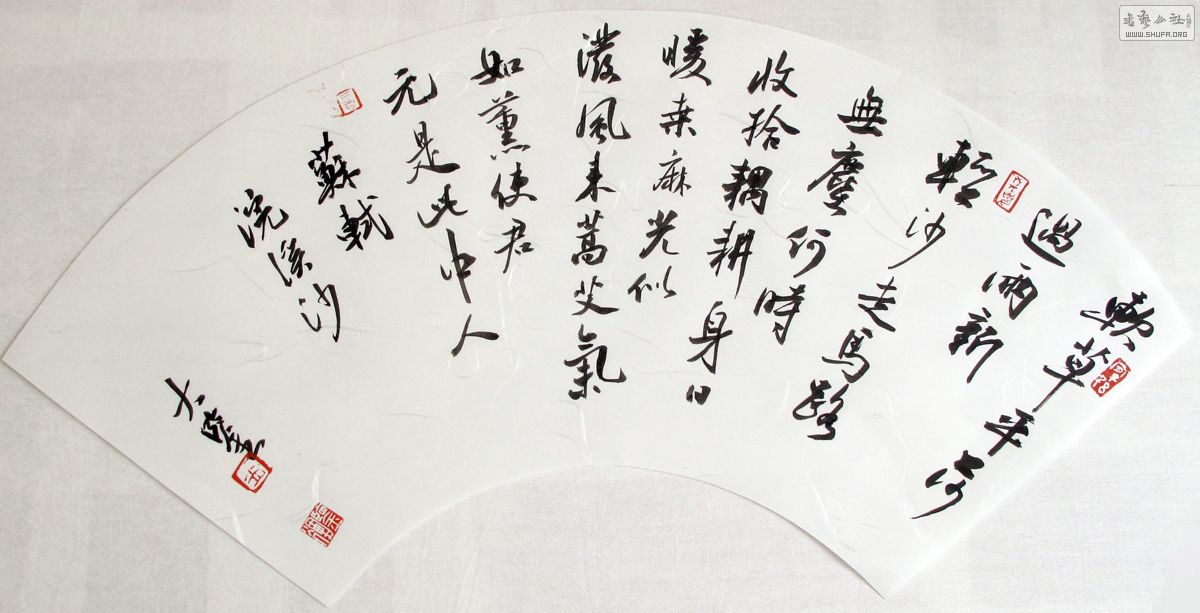 軟草平莎
過雨新
輕沙走馬路
無塵何時
收拾耦耕身日
暖桑麻光似
潑風來蒿艾氣
如薰使君
元是此中人
蘇軾
浣溪沙
大
書藝公社
WWW.SHUFA.ORG